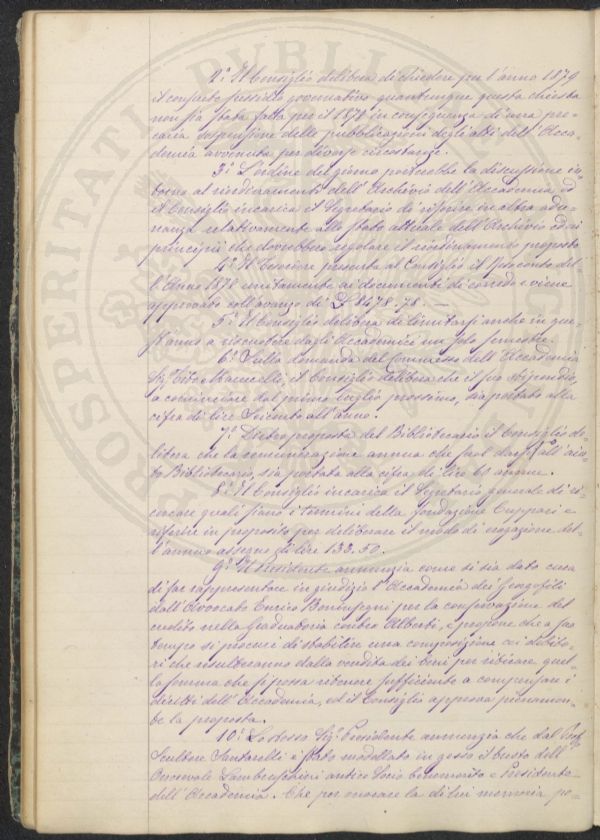 2.° Il Consiglio delibera di chiedere per l'anno 1879
il consueto sussidio governativo quantunque questa chiesta
non sia stata fatta per il 1878 in conseguenza di una pre-
caria sospensione delle pubblicazioni degli atti dell'Acca-
demia avvenuta per diverse circostanze.
3.° L'ordine del giorno porterebbe la discussione in-
torno al riordinamento dell'Archivio dell'Accademia ed
il Consiglio incarica il Segretario di riferire in altra adu-
nanza relativamente allo stato attuale dell'Archivio ed ai
principii che dovrebbero regolare il riordinamento proposto
4.° Il Tesoriere presenta al Consiglio il Resoconto del-
l'Anno 1878 unitamente ai documenti di corredo e viene
approvato coll'avanzo di 8478.78. —
5.° Il Consiglio delibera di limitarsi anche in que-
st'anno a riscuotere dagli Accademici un solo semestre.
6.° Sulla domanda del Commesso dell'Accademia
Sig. Tito Marucelli, il Consiglio delibera che il suo stipendio,
a cominciare dal primo luglio prossimo, sia portato alla
cifra di lire Seicento all'anno.
7.° Dietro proposta del Bibliotecario il Consiglio de-
libera che la remunerazione annua che suol darsi all'aiu-
to Bibliotecario, sia portata alla cifra di lire annue.
8.° Il Consiglio incarica il Segretario generale di ri-
cercare quali siano i termini della fondazione Cuppari e
riferire in proposito per deliberare il modo di erogazione del-
l'annuo assegno di lire 138.50.
9.° Il Presidente annunzia come si sia dato cura
di far rappresentare in giudizio l'Accademia dei Georgofili
dall'Avvocato Enrico Boninsegni per la conservazione del
credito nella Graduatoria contro Alberti, e propone che a suo
tempo si procuri di stabilire una composizione coi debito-
ri che resulteranno dalla vendita dei beni per ritirare quel-
la somma che si possa ritenere sufficiente a compensare i
diritti dell'Accademia, ed il Consiglio approva pienamen-
te la proposta.
10.° Lo stesso Sig.r Presidente annunzia che dal Prof.
Scultore Santarelli è stato modellato in gesso il busto dell'
Onorevole Lambruschini antico Socio benemerito e Presidente
dell'Accademia. Che per onorare la di lui memoria po-